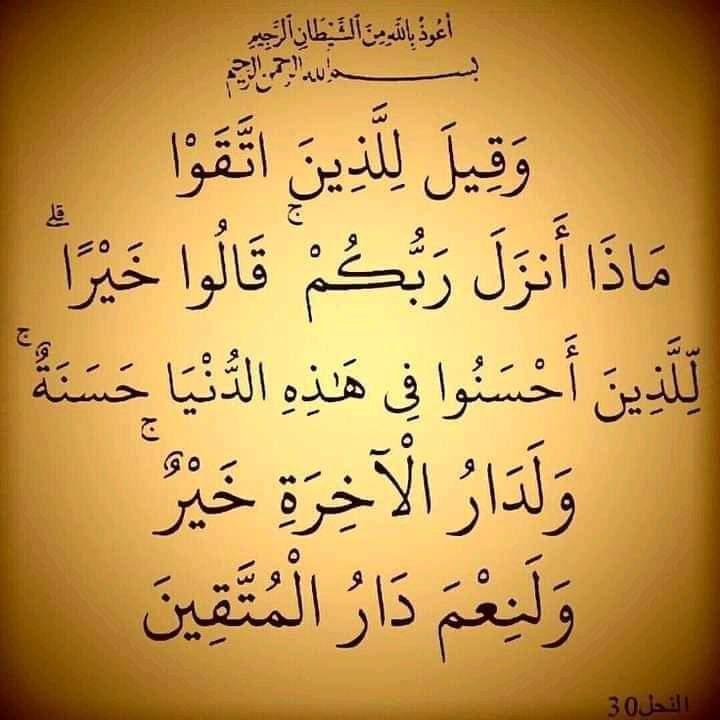 أعوذ بالله من الشيطان الرجيم
بسم الله الرحمن الرحيم
وَقِيلَ لِلَّذِينَ اتَّقَوْا
مَاذَا أَنزَلَ رَبُّكُمْ ۚ قَالُوا خَيْرًا ۗ
لِّلَّذِينَ أَحْسَنُوا فِي هَٰذِهِ الدُّنْيَا حَسَنَةٌ ۚ
وَلَدَارُ الْآخِرَةِ خَيْرٌ ۚ
وَلَنِعْمَ دَارُ الْمُتَّقِينَ
النحل30